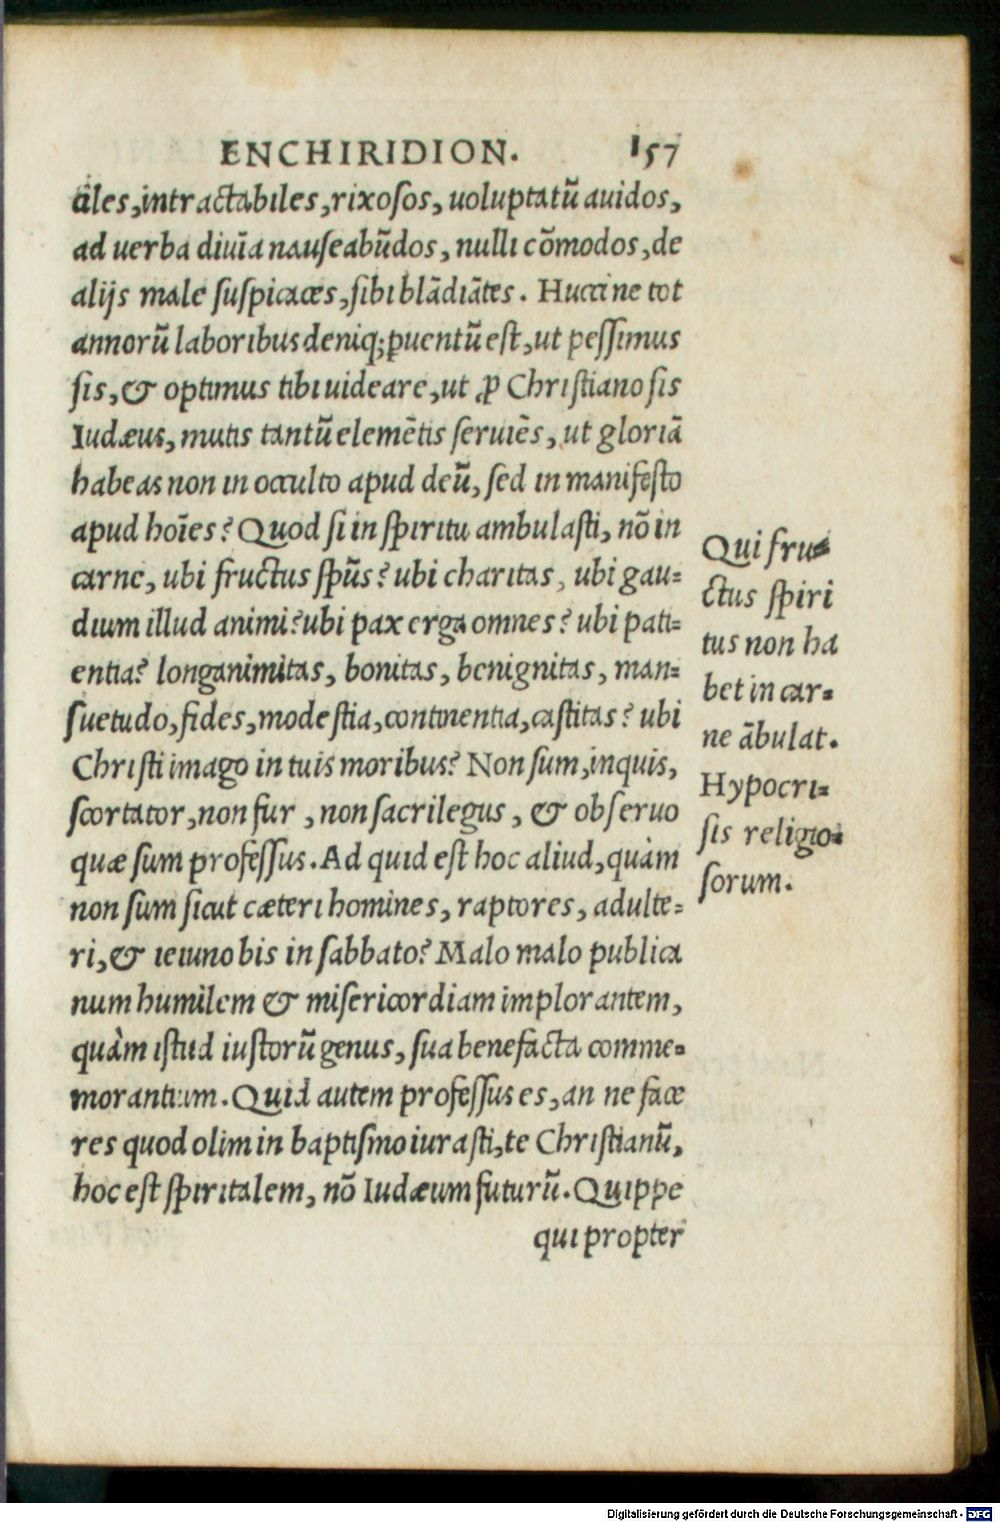 ENCHIRIDION. 157
ciles, intractabiles, rixosos, uoluptatũ auidos,
ad uerba diuĩa nauseabũdos, nulli cõmodos, de
alijs male suspicaces, sibi blãdiãtes. Huccine tot
annorũ laboribus deniq; ꝓuentũ est, ut pessimus
sis, & optimus tibi uideare, ut ꝓ Christiano sis
Iudæus, mutis tantũ elemẽtis seruiẽs, ut gloriã
habeas non in occulto apud deũ, sed in manifesto
apud hoĩes? Quod si in spiritu ambulasti, nõ in
carne, ubi fructus spũs? ubi charitas, ubi gau=
dium illud animi? ubi pax erga omnes? ubi pati=
entia? longanimitas, bonitas, benignitas, man=
suetudo, fides, modestia, continentia, castitas? ubi
Christi imago in tuis moribus? Non sum, inquis,
scortator, non fur, non sacrilegus, & obseruo
quæ sum professus. Ad quid est hoc aliud, quàm
non sum sicut cæteri homines, raptores, adulte=
ri, & ieiuno bis in sabbato? Malo malo publica
num humilem & misericordiam implorantem,
quàm istud iustorũ genus, sua benefacta comme=
morantium. Quid autem professus es, an ne face
res quod olim in baptismo iurasti, te Christianũ,
hoc est spiritalem, nõ Iudæum futurũ. Quippe
qui propter
Qui fru=
ctus spiri
tus non ha
bet in car=
ne ãbulat.
Hypocri=
sis religio=
sorum.
Digitalisierung gefördert durch die Deutsche Forschungsgemeinschaft - DFG